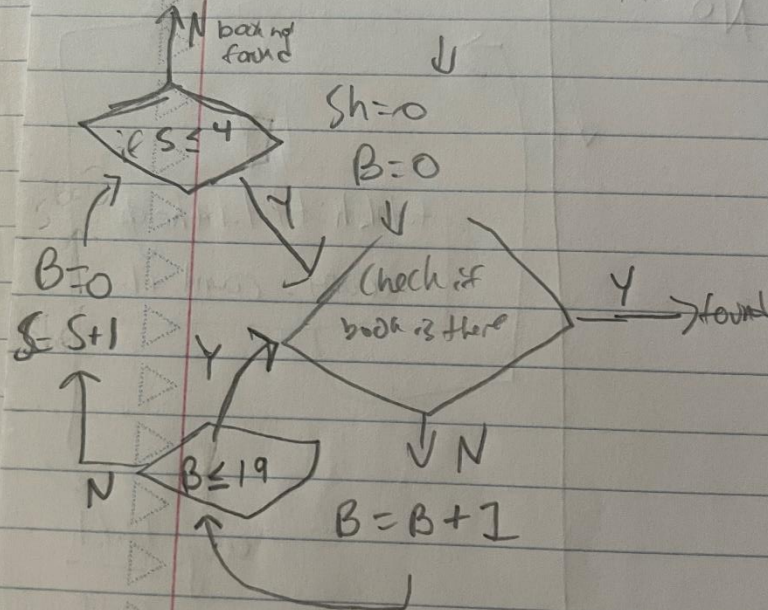 N book not
found
if S ≤ 4
Sh=0
B=0
Y
Check if
book is there
Y
found
B=0
S= S+1
Y
N
B≤19
N
B = B + 1